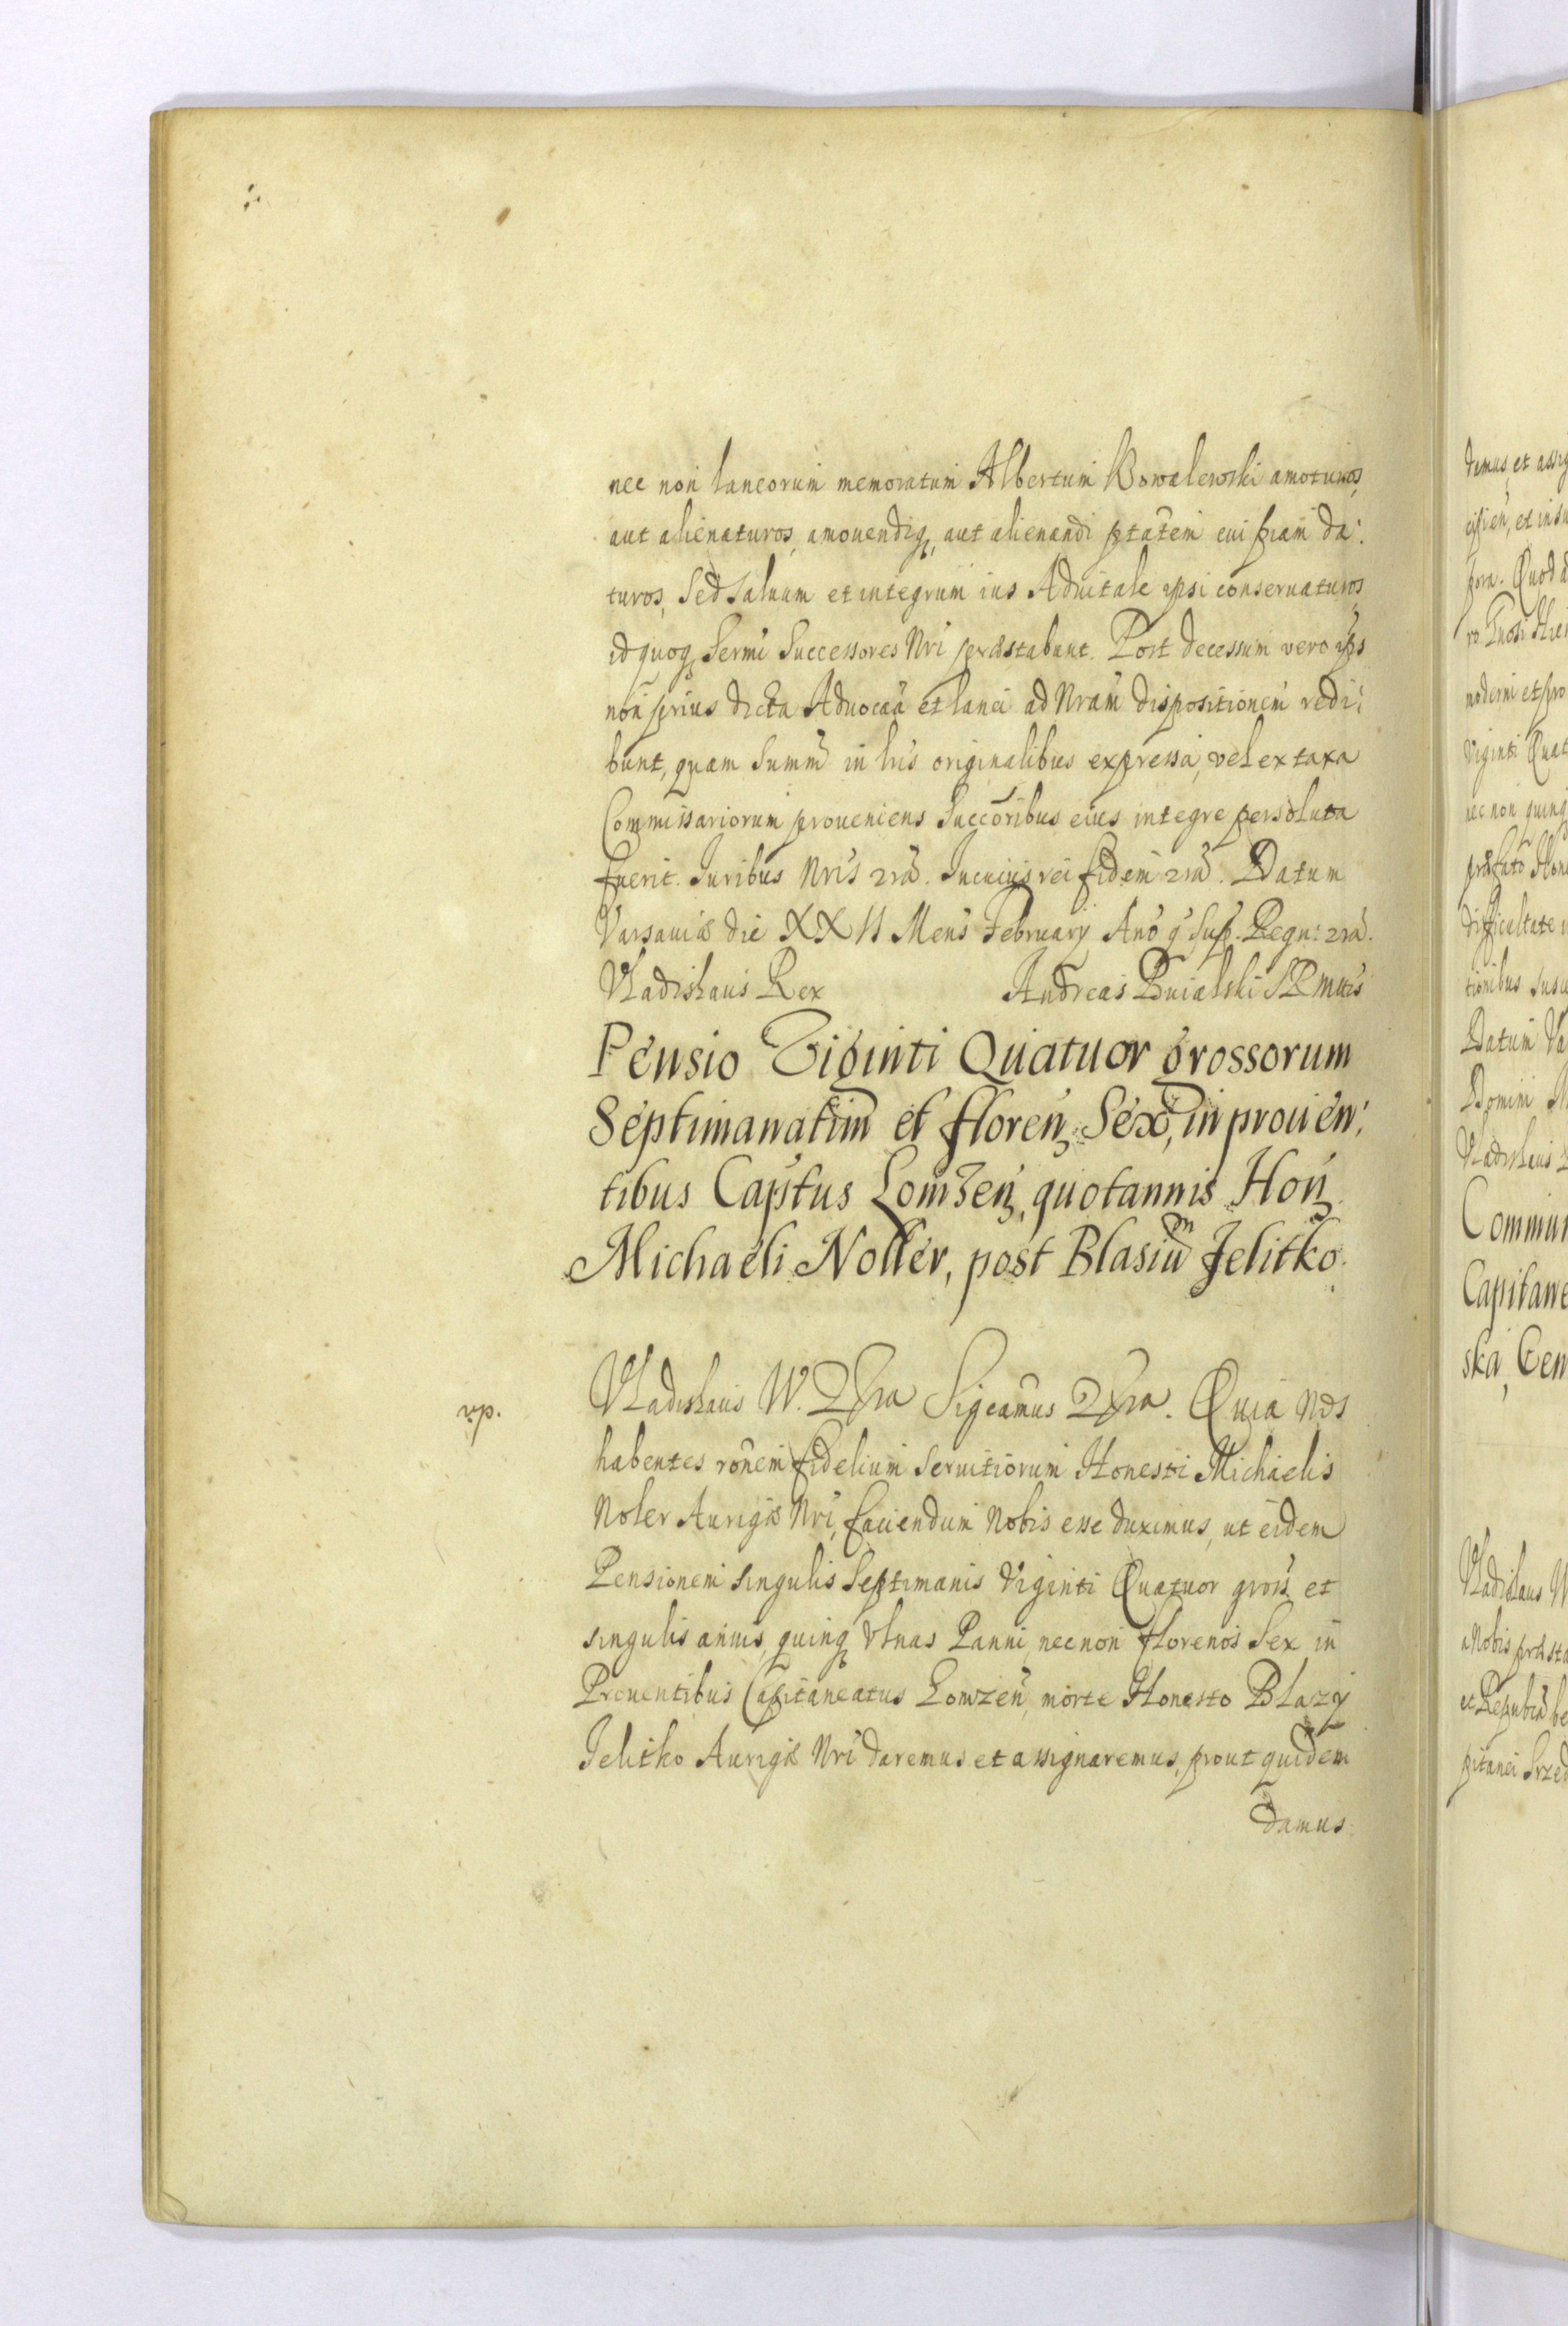 nec non laneorum memoratum Albertum Kowalewski amoturos,
aut alienaturos, amouendiq, aut alienandi ptatem cuipiam da:
turos, Sed saluum et integrum ius Aduitale ipsi conseruaturos
id quoq Sermi Successores Nri præstabunt. Post decessum vero ips
non prius dicta Aduocaa et lanei ad Nram dispositionem redi:
bunt, quam Summa in lris originalibus expressa, vel ex taxa
Commissariorum proueniens Succoribus eius integre persoluta
fuerit. Juribus Nris 2ra. In cuius rei fidem 2ra. Datum
Varsauiæ die XXII Mens February Ano q Sup. Regn: 2ra.
Vladislaus Rex Andreas Bnialski SRMttis
Pensio Viginti Quatuor grossorum
Septimanatim et floren Sex, in prouen:
tibus Capitus Lomzen, quotannis Hon
Michaeli Noller, post Blasium Jelitko.
Vladislaus IV. 2ra Sigcamus 2ra. Quia Nos
habentes ronem fidelium seruitiorum Honesti Michaelis
Noler Aurigæ Nri, faciendum Nobis esse duximus, ut eidem
Pensionem singulis Septimanis Viginti Quatuor gross et
singulis annis, quinq Vlnas Panni, nec non florenos Sex in
Prouentibus Capitaneatus Lomzen, morte Honesto Blazy
Jelitko Aurigæ Nri daremus et assignaremus, prout quidem
damus
demus, et assig
et insu
Quod d
moderni et pro
Viginti Quat
nec non quinq
præfato Hone
difficultate
tionibus susce
Datum Va
Domini M
Vladislaus
Commun
Capitane
ska, Gen
Vladislaus W
a Nobis præsta
pitanei Srzed